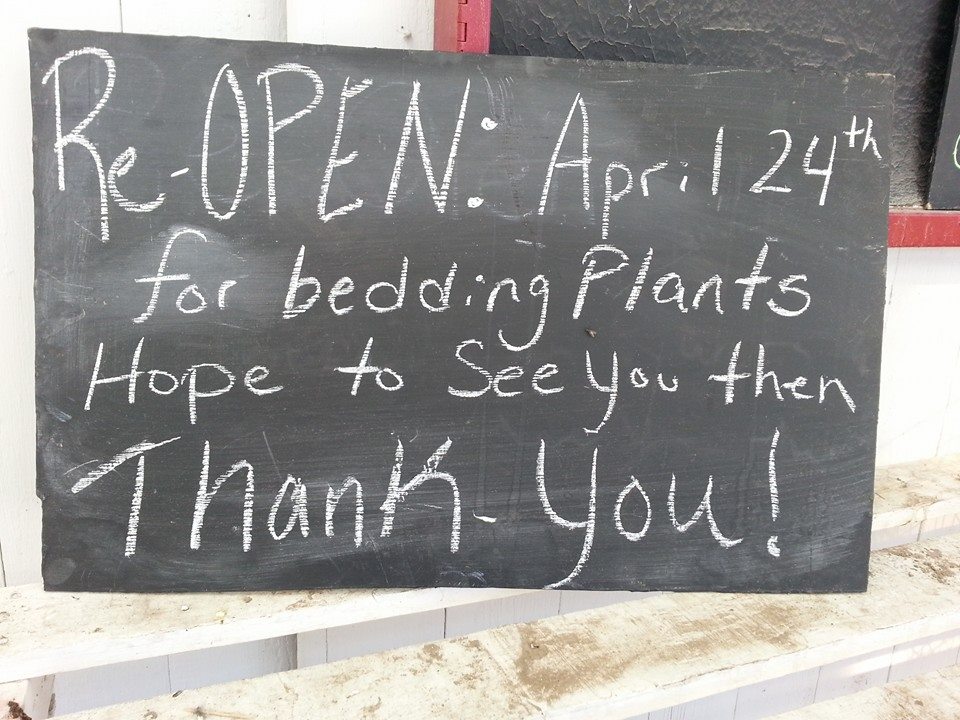 Re-OPEN: April 24th
for bedding Plants
Hope to See you then
Thank-you!